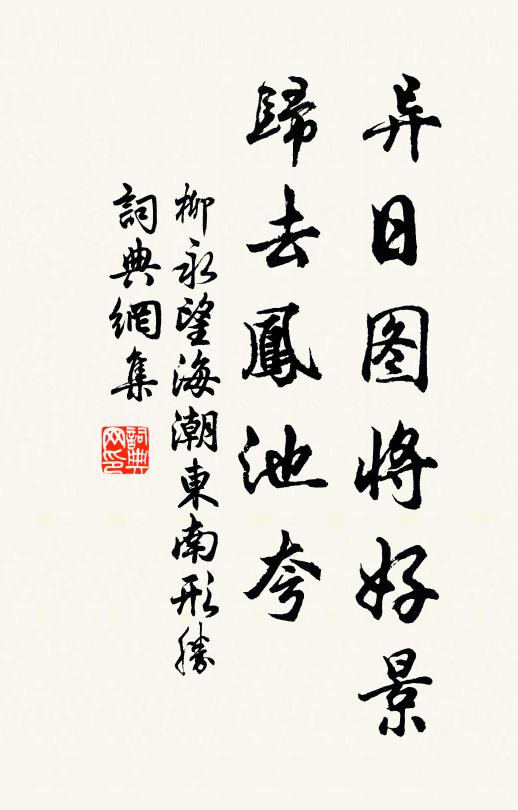 异日图将好景
歸去鳳池夸
柳永望海潮東南形勝
詞典網集
詞典网印